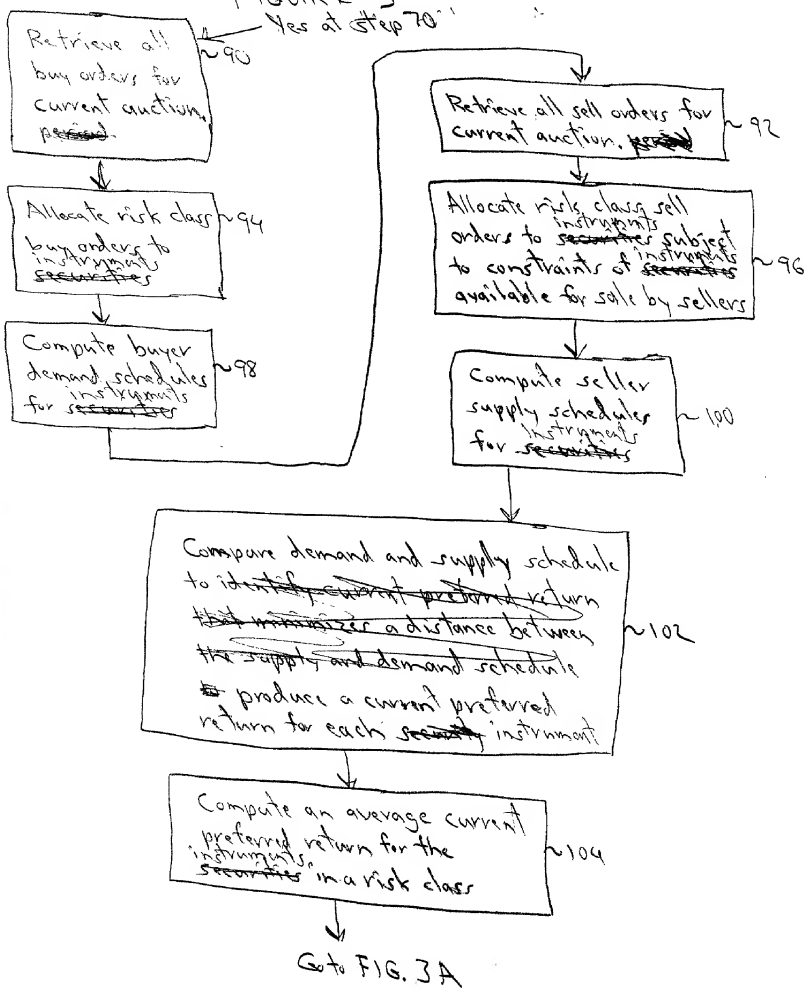 Yes at step 70
Retrieve all
buy orders for
current auction.
period
~90
Allocate risk class
buy orders to
instruments
securities
~94
Compute buyer
demand schedules
instruments
for securities
~98
Retrieve all sell orders for
current auction. period
~92
Allocate risk class sell
instruments
orders to securities subject
instruments
to constraints of securities
available for sale by sellers
~96
Compute seller
supply schedules
instruments
for securities
~100
Compare demand and supply schedule
to identify current preferred return
that minimizes a distance between
the supply and demand schedule
to produce a current preferred
return for each security instrument
~102
Compute an average current
preferred return for the
instruments
securities in a risk class
~104
Go to FIG. 3A